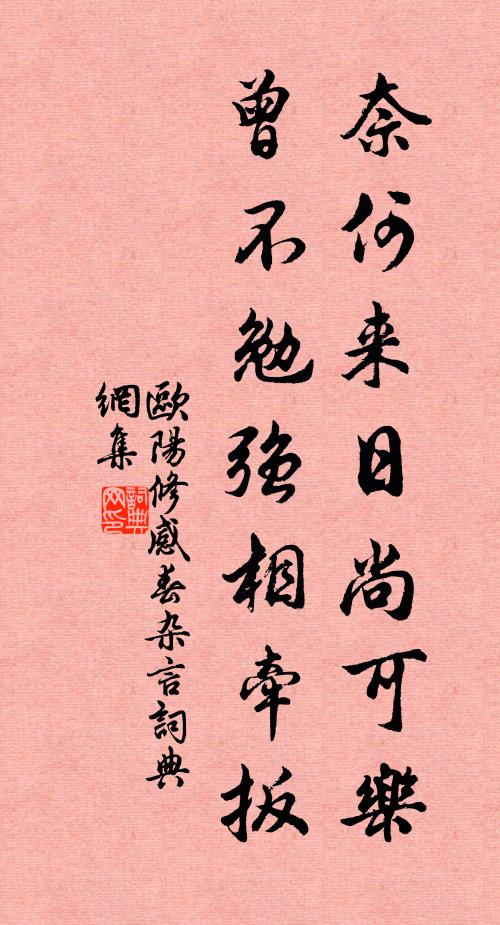 奈何来日尚可樂
曾不勉强相牽扳
歐陽修感春杂言詞典
網集
詞典
网印